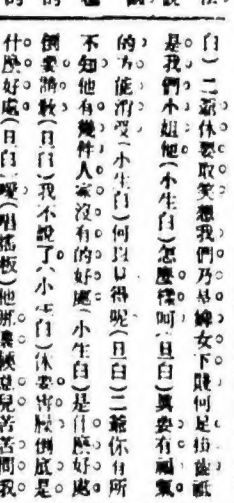 白)二爺休要取笑想我們乃是婢女下賤何足掛齒祗
是我們小姐他(小生白)怎麼樣呵(旦白)眞要有福氣
的方能消受(小生白)何以見得呢(旦白)二爺你有所
不知他有幾件人家沒有的好處(小生白)是什麼好處
倒要請敎(旦白)我不說了(小生白)休要害臊倒底是
什麼好處(旦白)噯(唱搖板)他那裏意兒苦苦問我